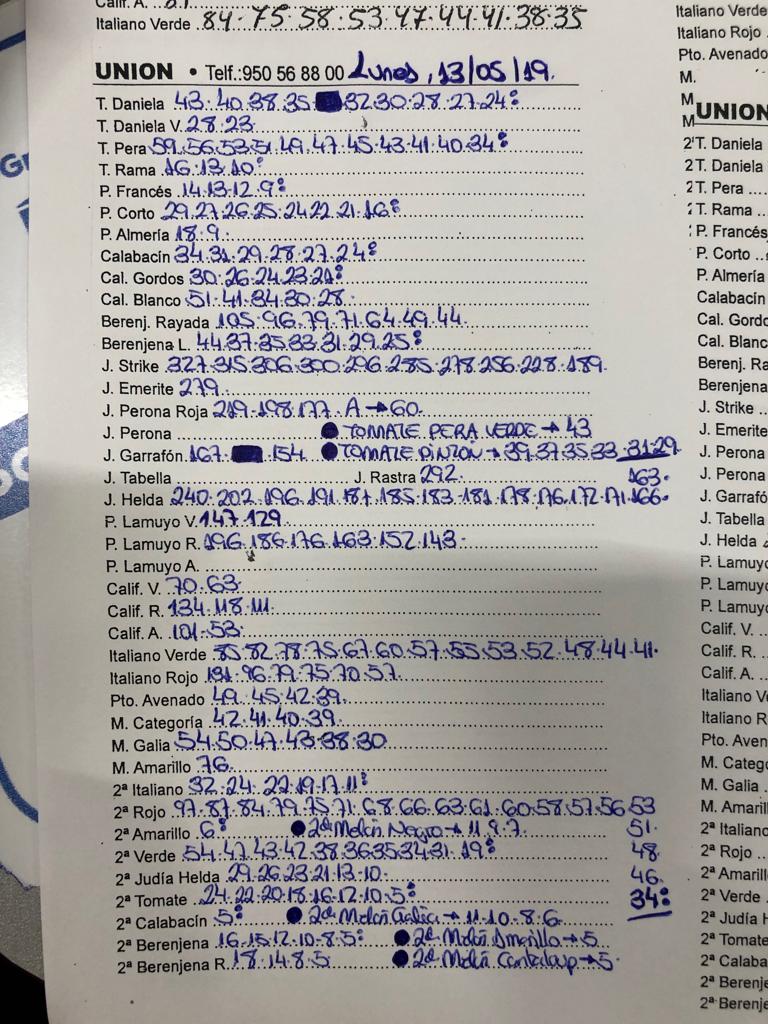 Calif. A.
Italiano Verde 84.75.58.53.47.44.41.38.35
UNION • Telf.:950 56 88 00 Lunes, 13/05/19.
T. Daniela 43.40.38.35 32.30.28.27.24:
T. Daniela V. 28.23.
T. Pera 59.56.53.51.49.47.45.43.41.40.34:
T. Rama 16.13.10:
P. Francés 14.13.12.9:
P. Corto 29.27.26.25.24.22.21.16:
P. Almería 18.9.
Calabacín 34.31.29.28.27.24:
Cal. Gordos 30.26.24.23.21:
Cal. Blanco 51.41.34.30.28.
Berenj. Rayada 105.96.79.71.64.49.44.
Berenjena L. 44.37.35.33.31.29.25:
J. Strike 327.315.306.300.296.285.278.256.228.189.
J. Emerite 279.
J. Perona Roja 219.198.177. A→60.
J. Perona ● TOMATE PERA VERDE→43
J. Garrafón 167. 154. ● TOMATE PINTON→39.37.35.33.31.29
J. Tabella J. Rastra 292. 163.
J. Helda 240.202.196.191.187.185.183.181.178.176.172.171.166.
P. Lamuyo V. 147.129.
P. Lamuyo R. 196.186.176.163.152.143.
P. Lamuyo A.
Calif. V. 70.63.
Calif. R. 134.118.111.
Calif. A. 101.53.
Italiano Verde 85.82.78.75.67.60.57.55.53.52.48.44.41.
Italiano Rojo 96.79.75.70.57.
Pto. Avenado 49.45.42.39.
M. Categoría 42.41.40.39.
M. Galia 54.50.47.43.38.30
M. Amarillo 76.
2ª Italiano 32.24.22.19.17.11:
2ª Rojo 97.87.84.79.75.71.68.66.63.61.60.58.57.56.53
2ª Amarillo 6: ● 2ª Melón Negro→11.9.7. 51.
2ª Verde 54.47.43.42.38.36.35.34.31.19: 48.
2ª Judía Helda 29.26.23.21.13.10. 46.
2ª Tomate 24.22.20.18.16.12.10.5: 34:
2ª Calabacín 5: ● 2ª Melón Galia→11.10.8.6.
2ª Berenjena 16.15.12.10.8.5: ● 2ª Melón Amarillo→5
2ª Berenjena R. 18.14.8.5 ● 2ª Melón Cantaloup→5.
Italiano Verde
Italiano Rojo
Pto. Avenado
M.
M
M
UNION
T. Daniela
T. Daniela
T. Pera
T. Rama
P. Francés
P. Corto
P. Almería
Calabacín
Cal. Gordo
Cal. Blanc
Berenj. Ra
Berenjena
J. Strike
J. Emerite
J. Perona
J. Perona
J. Garrafó
J. Tabella
J. Helda
P. Lamuyo
P. Lamuyo
P. Lamuyo
Calif. V.
Calif. R.
Calif. A.
Italiano Ve
Italiano R
Pto. Aven
M. Categ
M. Galia
M. Amaril
2ª Italiano
2ª Rojo
2ª Amarill
2ª Verde
2ª Judía H
2ª Tomate
2ª Calaba
2ª Berenje
2ª Berenje